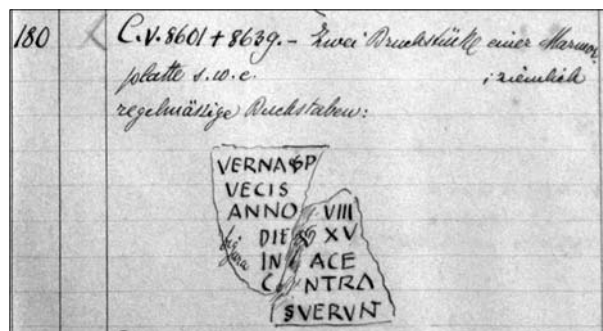 180 C.V. 8601 + 8639. - Zwei Bruchstücke einer Marmor-
platte s. w. o. ; ziemlich
regelmässige Buchstaben:
VERNA P
VECIS
ANNO VIII
DIE XV
figura
IN ACE
C NTRA
SVERVNT